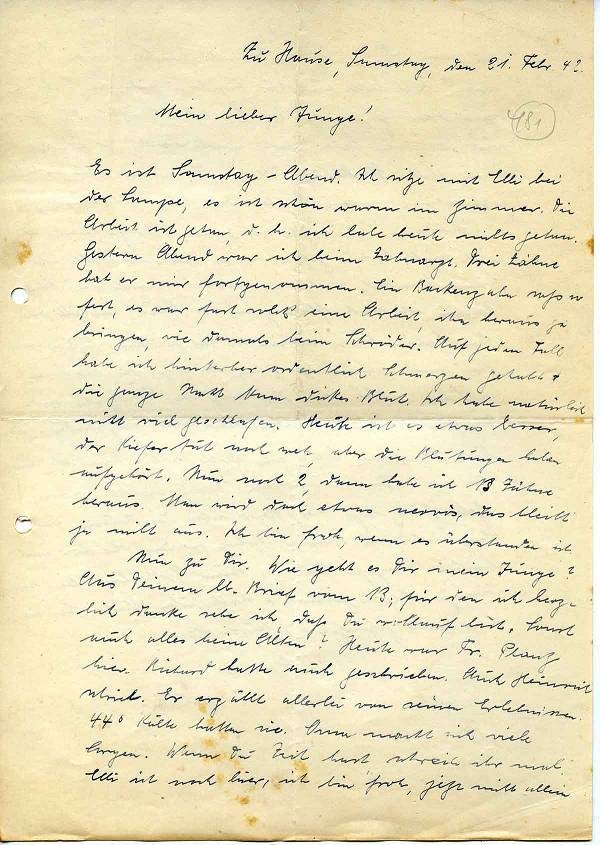 Zu Hause, Samstag, den 21. Febr 42.
Mein lieber Junge!
481
Es ist Samstag-Abend. Ich sitze mit Elli bei
der Lampe, es ist schön warm im Zimmer. Die
Arbeit ist getan, d. h. ich habe heute nichts getan.
Gestern Abend war ich beim Zahnarzt. Drei Zähne
hat er mir fortgenommen. Ein Backenzahn saß so
fest, es war fast solch eine Arbeit, ihn heraus zu
bringen, wie damals beim Schröder. Auf jeden Fall
habe ich hinterher ordentlich Schmerzen gehabt &
die ganze Nacht dickes Blut. Ich habe natürlich
nicht viel geschlafen. Heute ist es etwas besser,
der Kiefer tut noch weh, aber die Blutungen haben
aufgehört. Nun noch 2, dann habe ich 13 Zähne
heraus. Man wird doch etwas nervös, das bleibt
ja nicht aus. Ich bin froh, wenn es überstanden ist.
Nun zu Dir. Wie geht es Dir mein Junge?
Aus Deinem lb. Brief vom 13, für den ich herz-
lich danke sehe ich, daß Du wohlauf bist. Sonst
auch alles beim Alten? Heute war Fr. Plautz
hier. Richard hatte auch geschrieben. Auch Heinrich
schrieb. Er erzählt allerlei von seinen Erlebnissen.
44° Kälte hatten sie. Anna macht sich viele
Sorgen. Wenn Du Zeit hast schreib ihr mal.
Elli ist noch hier, ich bin froh, jetzt nicht allein